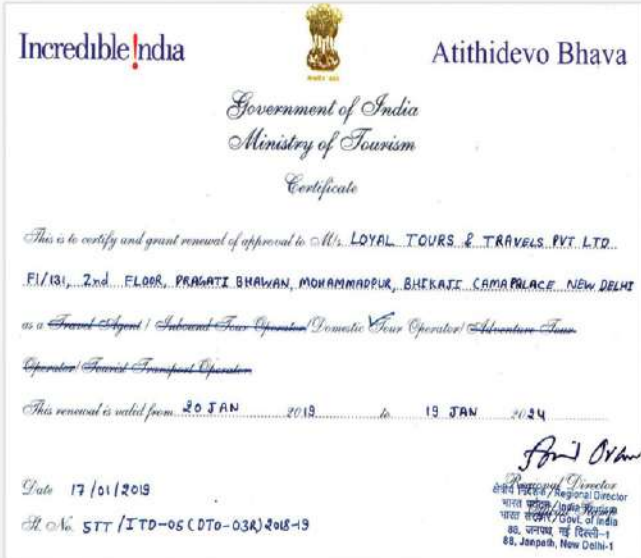 Incredible!ndia
Atithidevo Bhava
Government of India
Ministry of Tourism
Certificate
This is to certify and grant renewal of approval to M/s. LOYAL TOURS & TRAVELS PVT LTD
F1/131, 2nd FLOOR, PRAGATI BHAWAN, MOHAMMADPUR, BHIKAJI CAMAPALACE NEW DELHI
as a Travel Agent / Inbound Tour Operator/ Domestic Tour Operator/ Adventure Tour
Operator/ Tourist Transport Operator
This renewal is valid from 20 JAN 2019 to 19 JAN 2024
Regional Director
क्षेत्रीय निदेशक / Regional Director
भारत पर्यटन / India Tourism
भारत सरकार / Govt. of India
88, जनपथ, नई दिल्ली-1
88, Janpath, New Delhi-1
Date 17/01/2019
Sl. No. STT/ITD-05(DTO-03R)2018-19